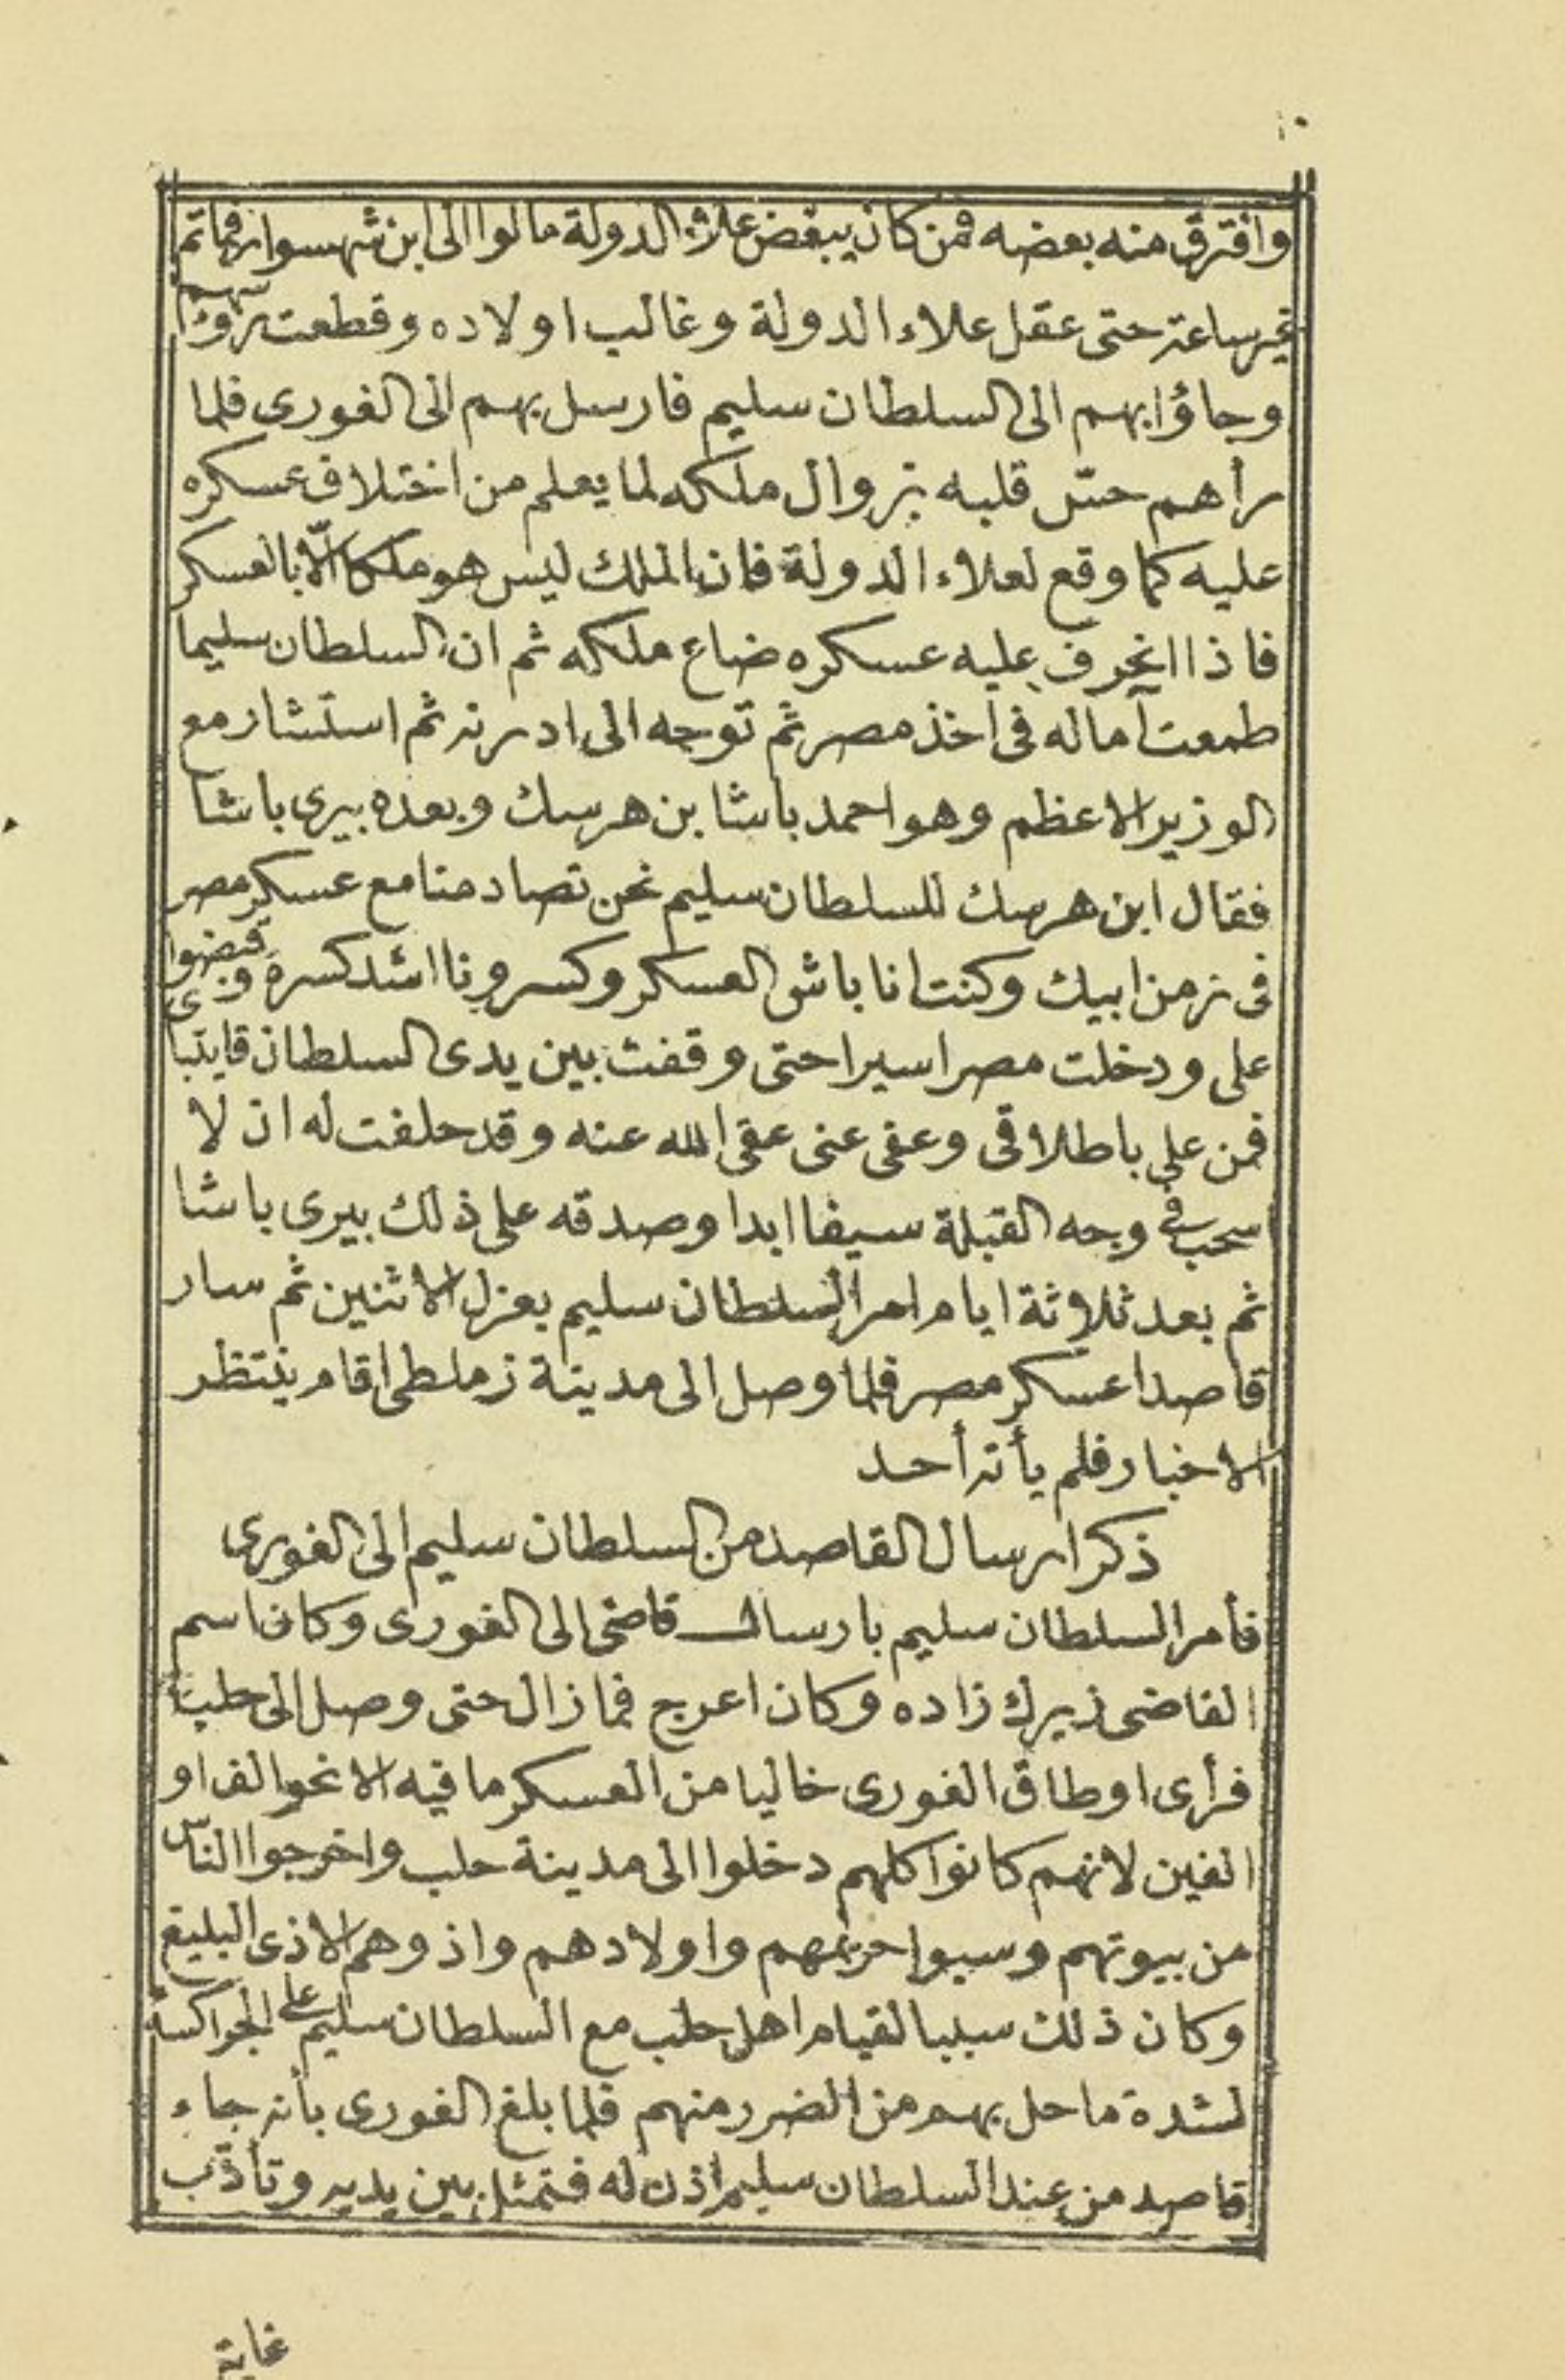 ١٠
وافترق منه بعضه فمن كان يبغض علاء الدولة مالوا الى ابن شهسوار فما تم
غير ساعة حتى عقل علاء الدولة وغالب اولاده وقطعت رؤسهم
وجاؤا بهم الى السلطان سليم فارسل بهم الى الغورى فلما
رأهم حسّ قلبه بزوال ملكه لما يعلم من اختلاف عسكره
عليه كما وقع لعلاء الدولة فان الملك ليس هو ملكا الّا بالعسكر
فاذا انحرف عليه عسكره ضاع ملكه ثم ان السلطان سليما
طمعت آماله فى اخذ مصر ثم توجه الى ادرنه ثم استشار مع
الوزير الاعظم وهو احمد باشا بن هرسك وبعده بيرى باشا
فقال ابن هرسك للسلطان سليم نحن تصادمنا مع عسكر مصر
فى زمن ابيك وكنت انا باش العسكر وكسرونا اشد كسرة وقبضوا
على ودخلت مصر اسيرا حتى وقفت بين يدى السلطان قايتباى
فمن على باطلاقى وعفى عنى عفى الله عنه وقد حلفت له ان لا
سحب فى وجه القبلة سيفا ابدا وصدقه على ذلك بيرى باشا
ثم بعد ثلاثة ايام امر السلطان سليم بعزل الاثنين ثم سار
قاصدا عسكر مصر فلما وصل الى مدينة زملطى اقام ينتظر
الاخبار فلم يأته أحد
ذكر ارسال القاصد من السلطان سليم الى الغورى
فأمر السلطان سليم بارسال قاضى الى الغورى وكان اسم
القاضى زيرك زاده وكان اعرج فما زال حتى وصل الى حلب
فرأى اوطاق الغورى خاليا من العسكر ما فيه الا نحو الف او
الفين لانهم كانوا كلهم دخلوا الى مدينة حلب واخرجوا النّاس
من بيوتهم وسبوا حريمهم واولادهم واذوهم الاذى البليغ
وكان ذلك سببا لقيام اهل حلب مع السلطان سليم على الجراكسة
لشدة ما حل بهم من الضرر منهم فلما بلغ الغورى بأنه جاء
قاصد من عند السلطان سليم اذن له فتمثل بين يديه وتأدّب
غاية